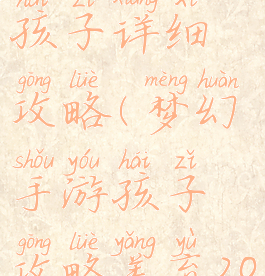 hái zi xiáng xì
孩子详细
gōng lüè mèng huàn
攻略(梦幻
shǒu yóu hái zǐ
手游孩子
gōng lüè yǎng yù
攻略养育20